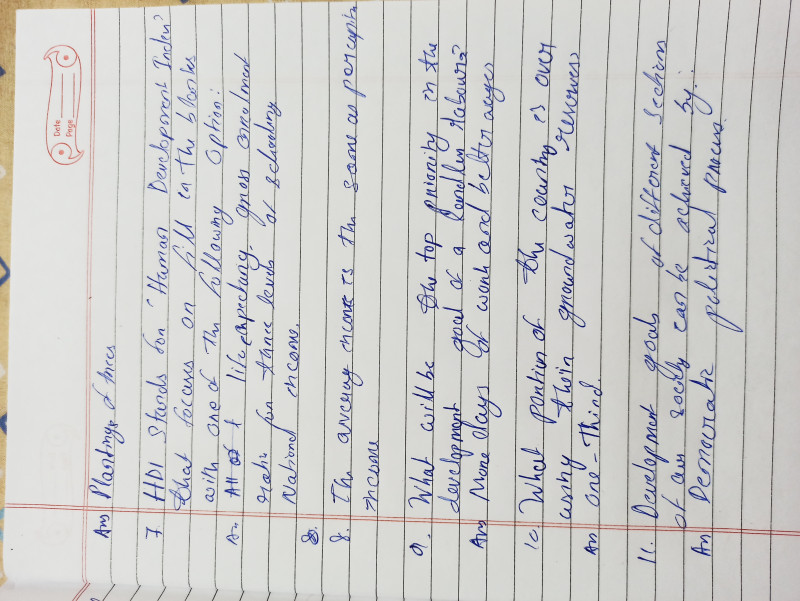 Date
Page
Ans Planting of trees
7. HDI stands for "Human Development Index"
that focuses on fill in the blanks
with one of the following option:
An life expectancy, gross enrolment
ratio for three levels of schooling
National income.
8. The average income is the same as per capita
income
9. What will be the top priority in the
development goal of a landless labours?
Ans More days of work and better wages
10. What portion of the country is over
using their groundwater reserves
An one-Third.
11. Development goals of different sections
of our society can be achieved by:
An Democratic political process.